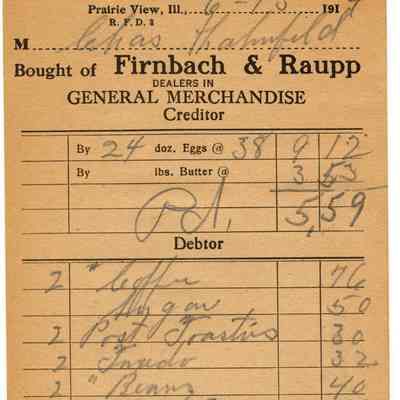 Prairie View, Ill., 6-13 191
R. F. D. 2
M Chas
Bought of Firnbach & Raupp
DEALERS IN
GENERAL MERCHANDISE
Creditor
By 24 doz. Eggs @ 38 9 12
By lbs. Butter @ 3 53
Pd. 5,59
Debtor
2 " Coffee 76
Sugar 50
2 Post Toasties 30
2 Tuxedo 32
2 " Beans 40